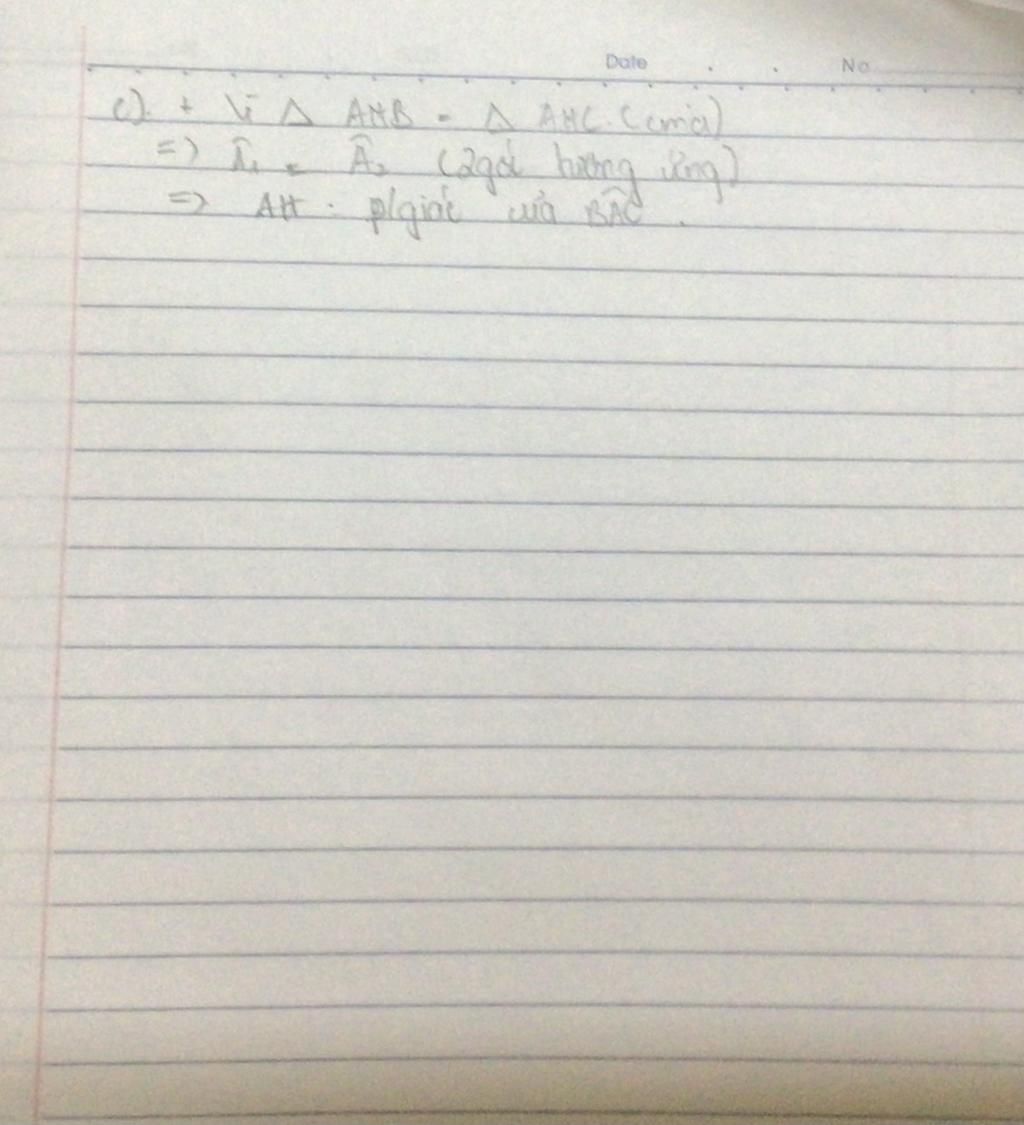 Date . . No
c). + Vì Δ AHB = Δ AHC (cma)
=> Â₁ = Â₂ (2góc tương ứng)
=> AH : p/giác của BÂC.